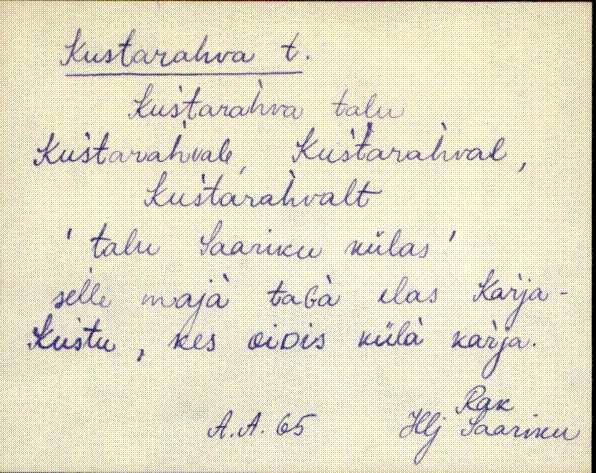 Kustarahva t.
Kus̀tarah̀va talu
Kus̀tarah̀vale, Kus̀tarah̀val,
Kus̀tarah̀valt
' talu Saariku külas '
sèlle majà tabà elas Kar̀ja-
Kus̀tu, kes oiDis külà kar̀ja.
Rak
A.A. 65 Hlj Saariku